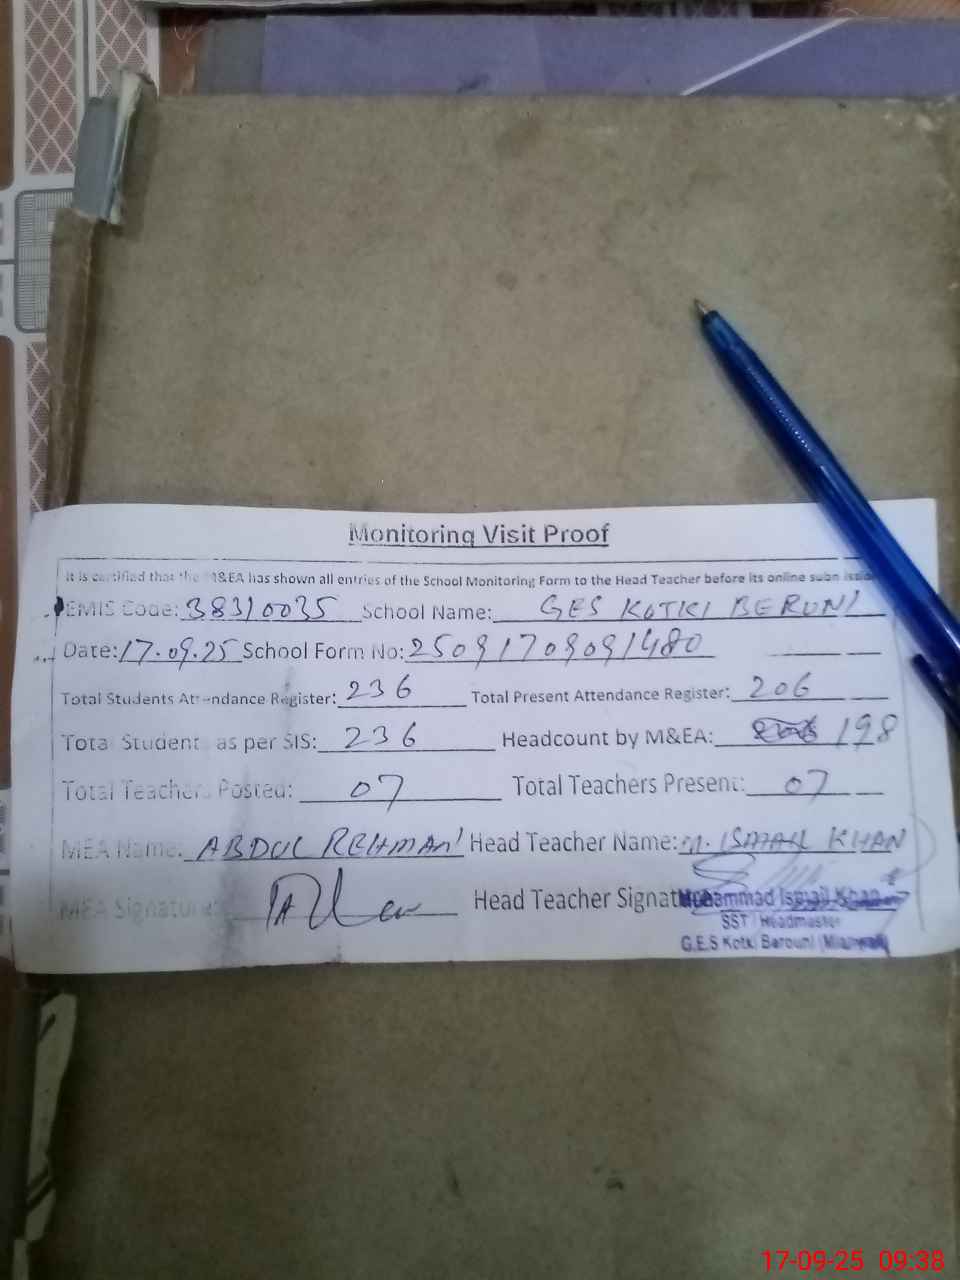 Monitoring Visit Proof
It is certified that the M&EA has shown all entries of the School Monitoring Form to the Head Teacher before its online submission
EMIS Code: 38310035 School Name: GES KOTKI BERUNI
Date: 17.09.25 School Form No: 25091709091480
Total Students Attendance Register: 236 Total Present Attendance Register: 206
Total Students as per SIS: 236 Headcount by M&EA: 198
Total Teachers Posted: 07 Total Teachers Present: 07
MEA Name: ABDUL REHMAN Head Teacher Name: M. ISMAIL KHAN
MEA Signature: Head Teacher Signature
Muhammad Ismail Khan
SST / Headmaster
G.E.S Kotki Barouni (Mianwali)
17-09-25 09:38